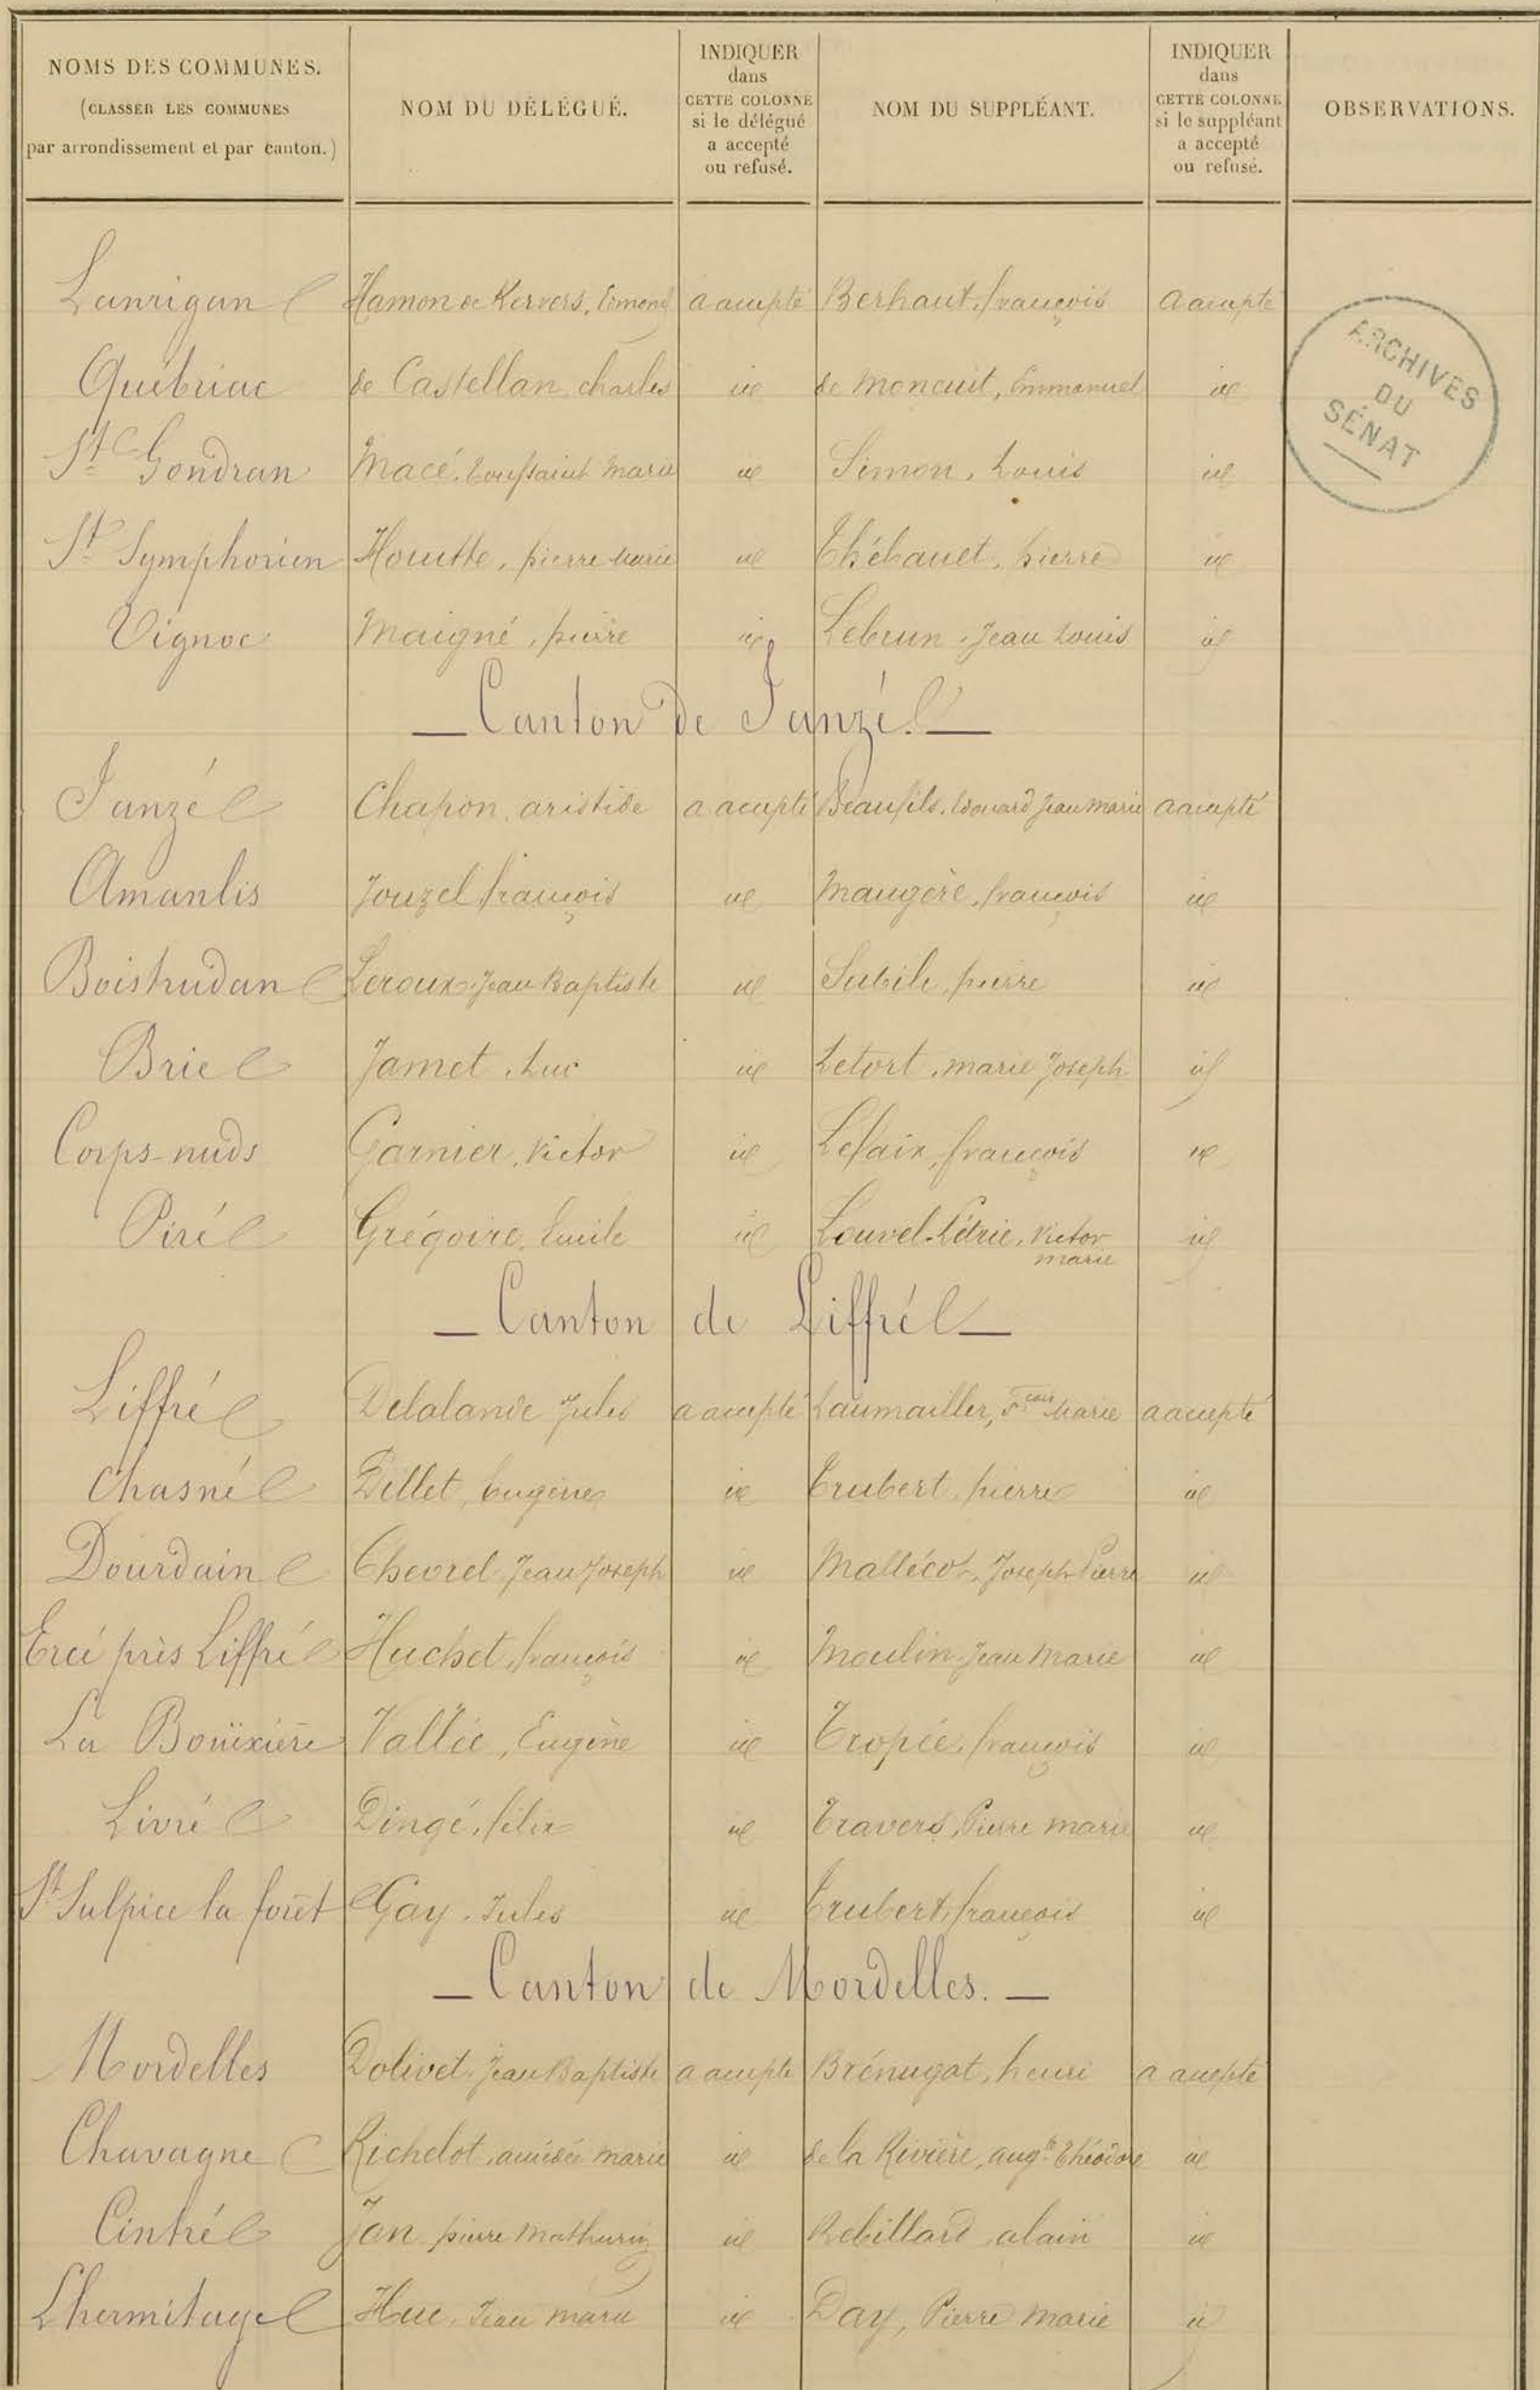 NOMS DES COMMUNES.
(CLASSER LES COMMUNES
par arrondissement et par canton.)
NOM DU DÉLÉGUÉ.
INDIQUER
dans
CETTE COLONNE
si le délégué
a accepté
ou refusé.
NOM DU SUPPLÉANT.
INDIQUER
dans
CETTE COLONNE
si le suppléant
a accepté
ou refusé.
OBSERVATIONS.
ARCHIVES
DU
SÉNAT
Lanrigan Hamon de Kervers, Edmond a accepté Berhaut, françois a accepté
Québriac de Castellan, charles id de Moncuit, Emmanuel id
St Gondran Macé, Toussaint Marie id Simon, Louis id
St Symphorien Houitte, pierre Marie id Thébault, pierre id
Vignoc Maigné, pierre id Lebrun, Jean Louis id
— Canton de Janzé. —
Janzé Chapon, aristide a accepté Beaufils, Edouard Jean Marie a accepté
Amanlis Jouzel françois id Maugère, françois id
Boistrudan Leroux, Jean Baptiste id Subile, pierre id
Brie Jamet, Luc id Letort, marie Joseph id
Corps-nuds Garnier, Victor id Lefaix, françois id
Piré Grégoire, Emile id Louvel-Pétrie, Victor marie id
— Canton de Liffré —
Liffré Delalande Jules a accepté Laumailler, Fçois Marie a accepté
Chasné Dillet, Eugène id Trubert, pierre id
Dourdain Chevrel, Jean Joseph id Mallécot, Joseph Pierre id
Ercé près Liffré Huchet, françois id Moulin, Jean Marie id
La Bouëxière Vallée, Eugène id Tropée, françois id
Livré Dingé, félix id Travers, Pierre marie id
St Sulpice la forêt Gay, Jules id Trubert, françois id
— Canton de Mordelles. —
Mordelles Dolivet, Jean Baptiste a accepté Brénugat, henri a accepté
Chavagne Richelot, amédée marie id de la Rivière, augte Théodore id
Cintré Jan pierre Mathurin id Rebillard, alain id
Lhermitage Huc, Jean marie id Day, Pierre Marie id